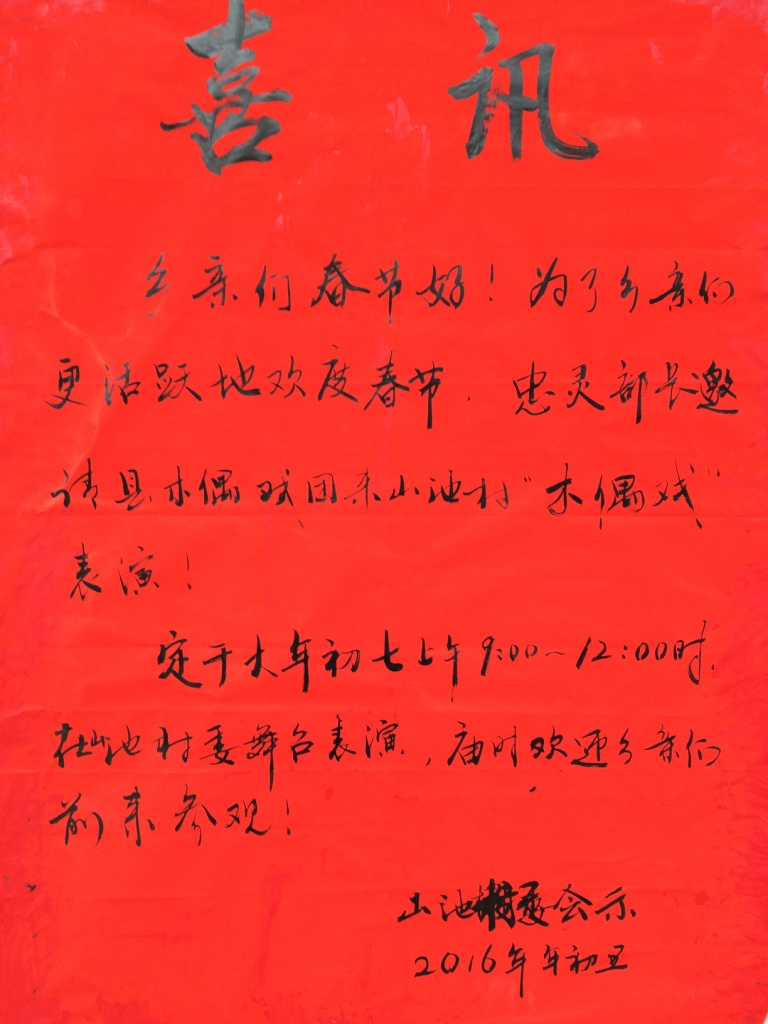 喜讯
乡亲们春节好！为了乡亲们
更活跃地欢度春节.忠灵部长邀
请县木偶戏团来山池村“木偶戏”
表演！
定于大年初七上午9:00~12:00时.
在山池村委舞台表演,庙时欢迎乡亲们
前来参观！
山池村委会示
2016年年初五